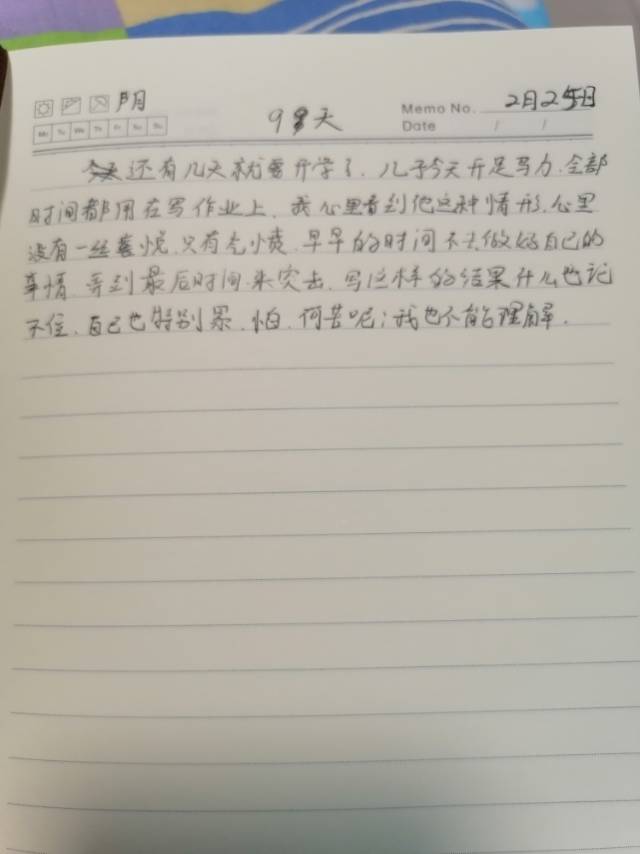 阴
Memo No. 2月25日
Mo Tu We Th Fr Sa Su
98天
Date / /
还有几天就要开学了.儿子今天开足马力.全部
时间都用在写作业上.我心里看到他这种情形.心里
没有一丝喜悦.只有气愤.早早的时间不去做好自己的
事情.等到最后时间.来突击.写这样的结果什么也记
不住.自己也特别累.怕.何苦呢;我也不能理解.